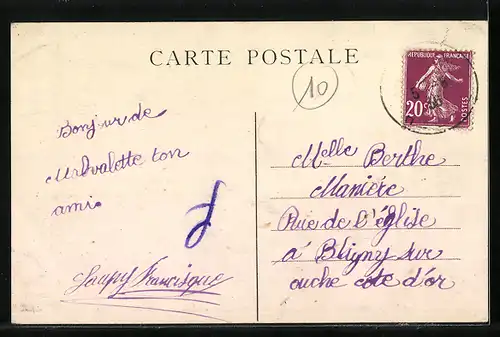 CARTE POSTALE
10
RÉPUBLIQUE FRANÇAISE
20c
POSTES
Bonjur de
Malvalette ton
ami
Saupy Francisque
Melle Berthe
Manière
Rue de l'église
à Bligny sur
ouche cote d'or